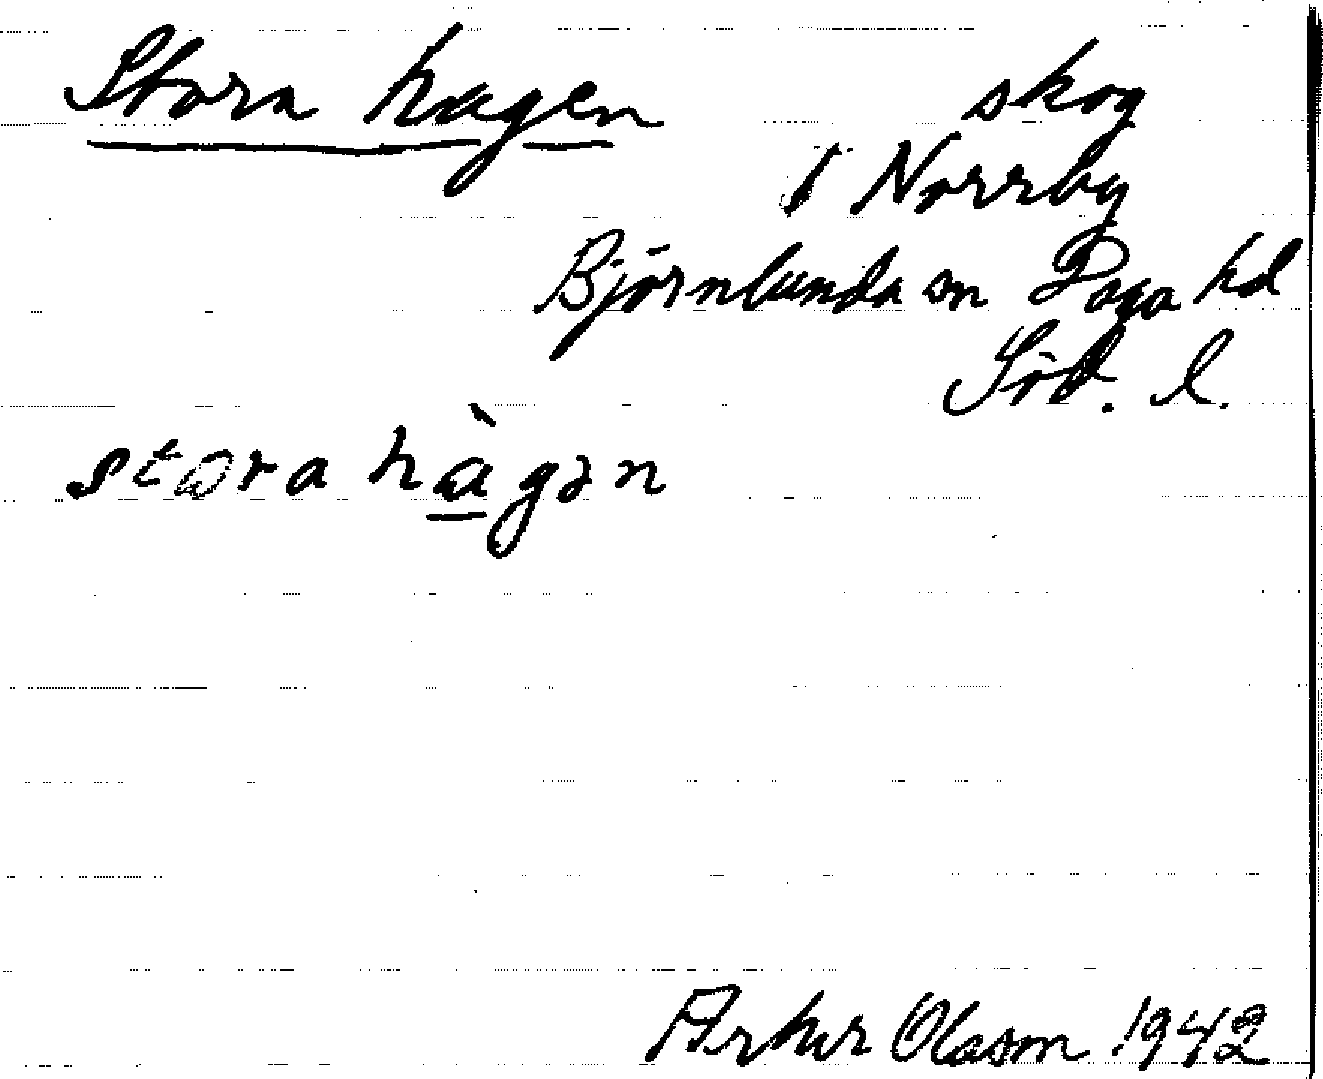 Stora hagen skog
i Norrby
Björnlunda sn Daga hd
Söd. l.
stora hàgən
Arthur Olsson 1942